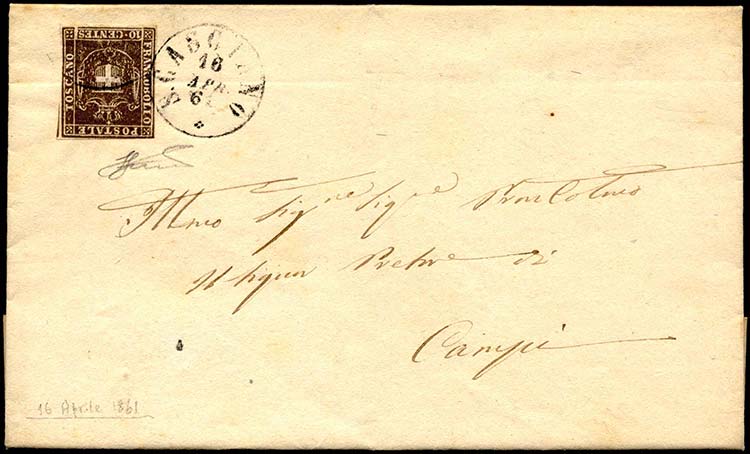 10 CENTES
FRANCOBOLLO
POSTALE
TOSCANO
S. CASCIANO
16
APR.
61
Illmo Sigre Sigre Pron Colmo
Il Signor Pretore di
Campi
16 Aprile 1861